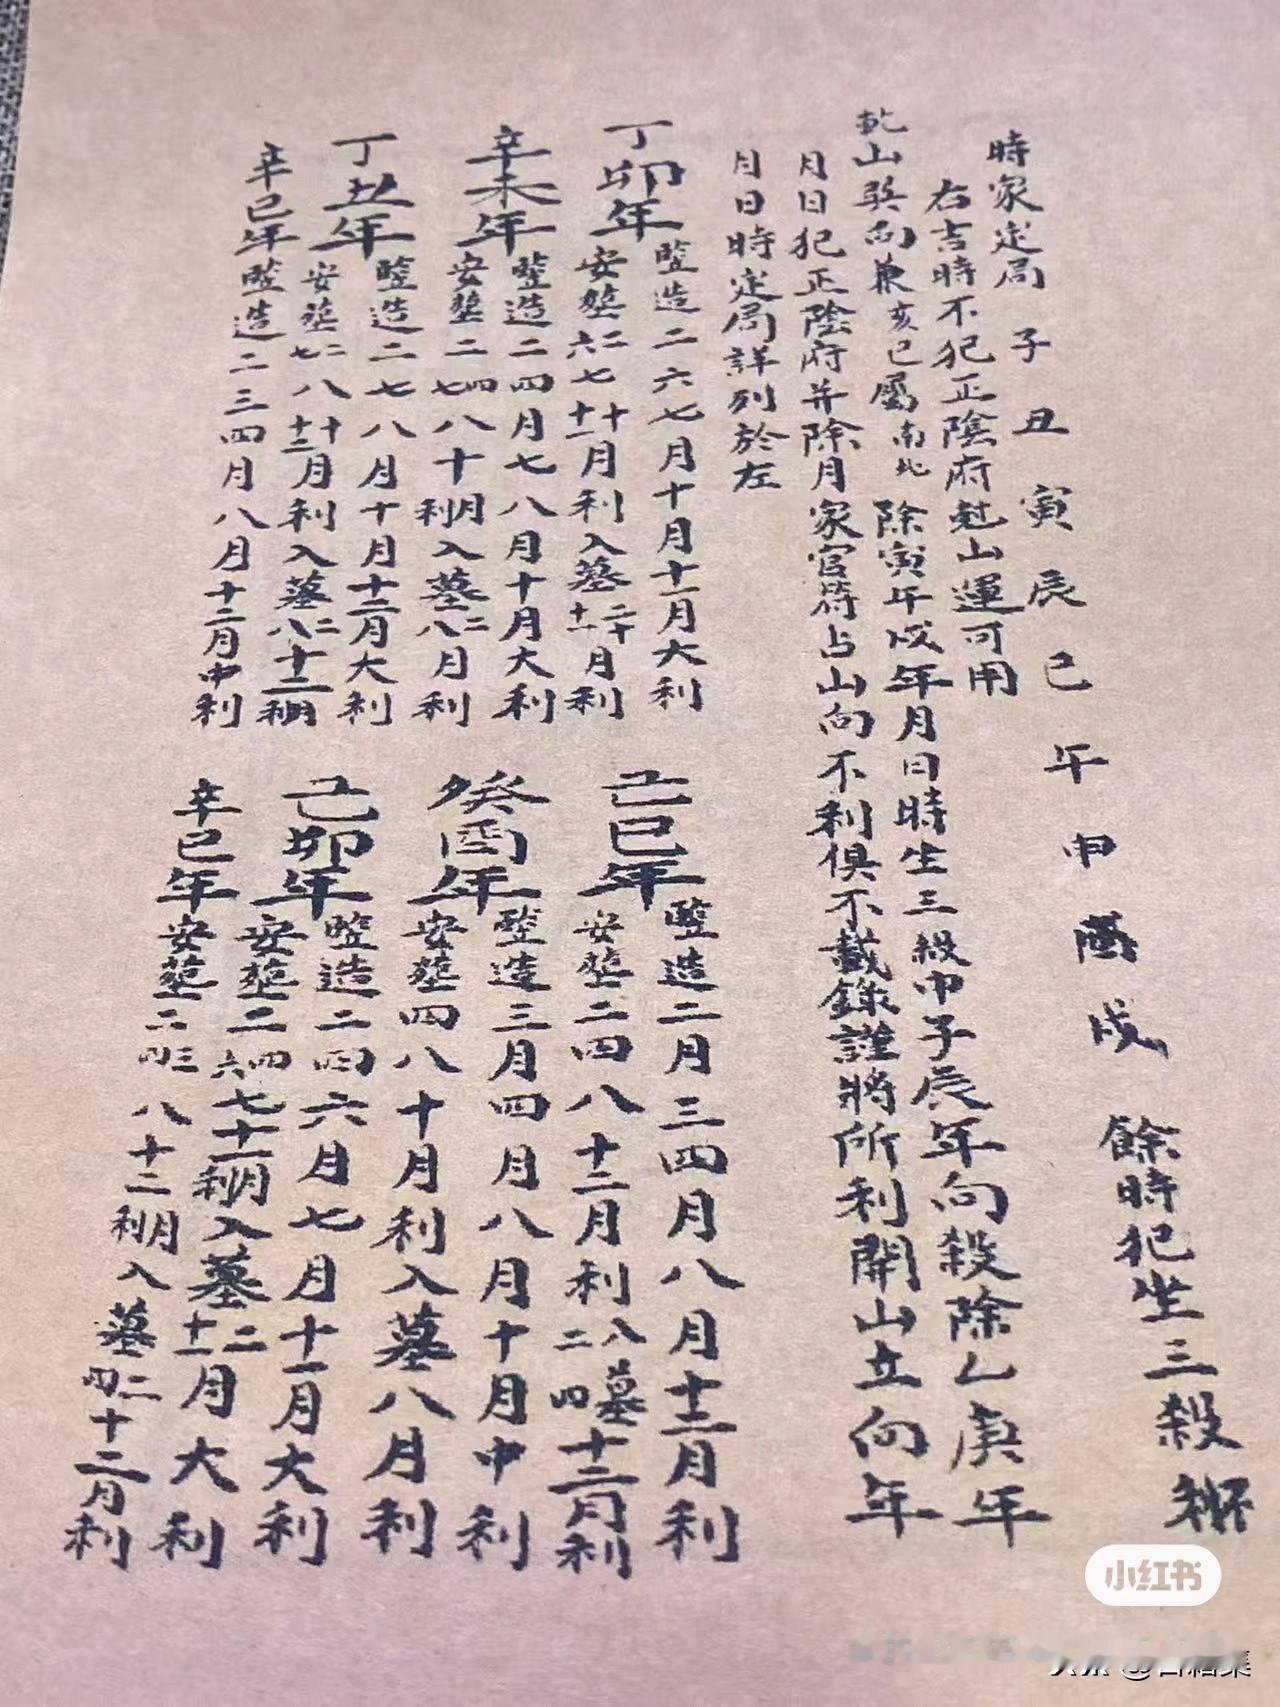 時家定局 子丑寅辰巳午申酉戌 餘時犯坐三殺不利
右吉時不犯正陰府尅山運可用
乾山巽向兼亥巳屬南北 除寅午戌年月日時坐三殺申子辰年向殺除乙庚年
月日犯正陰府并除月家官符占山向不利俱不載錄謹將所利開山立向年
月日時定局詳列於左
丁卯年 豎造二六七月十月十一月大利
安葬二六七十十一月利入墓二十十一月利
己巳年 豎造二月三四月八月十二月利
安葬二四八十二月利入墓二四十二月利
辛未年 豎造二四月七八月十月大利
安葬二四七八十月利入墓二八月利
癸酉年 豎造三月四月八月十月中利
安葬四八十月利入墓八月利
丁丑年 豎造二七八月十月十二月大利
安葬二七八十十二月利入墓二八十二月利
己卯年 豎造二四六月七月十一月大利
安葬二四六七十一月利入墓二十一月大利
辛巳年 豎造二三四月八月十二月中利
辛巳年 安葬二三四八十二月利入墓二四十二月利
小红书